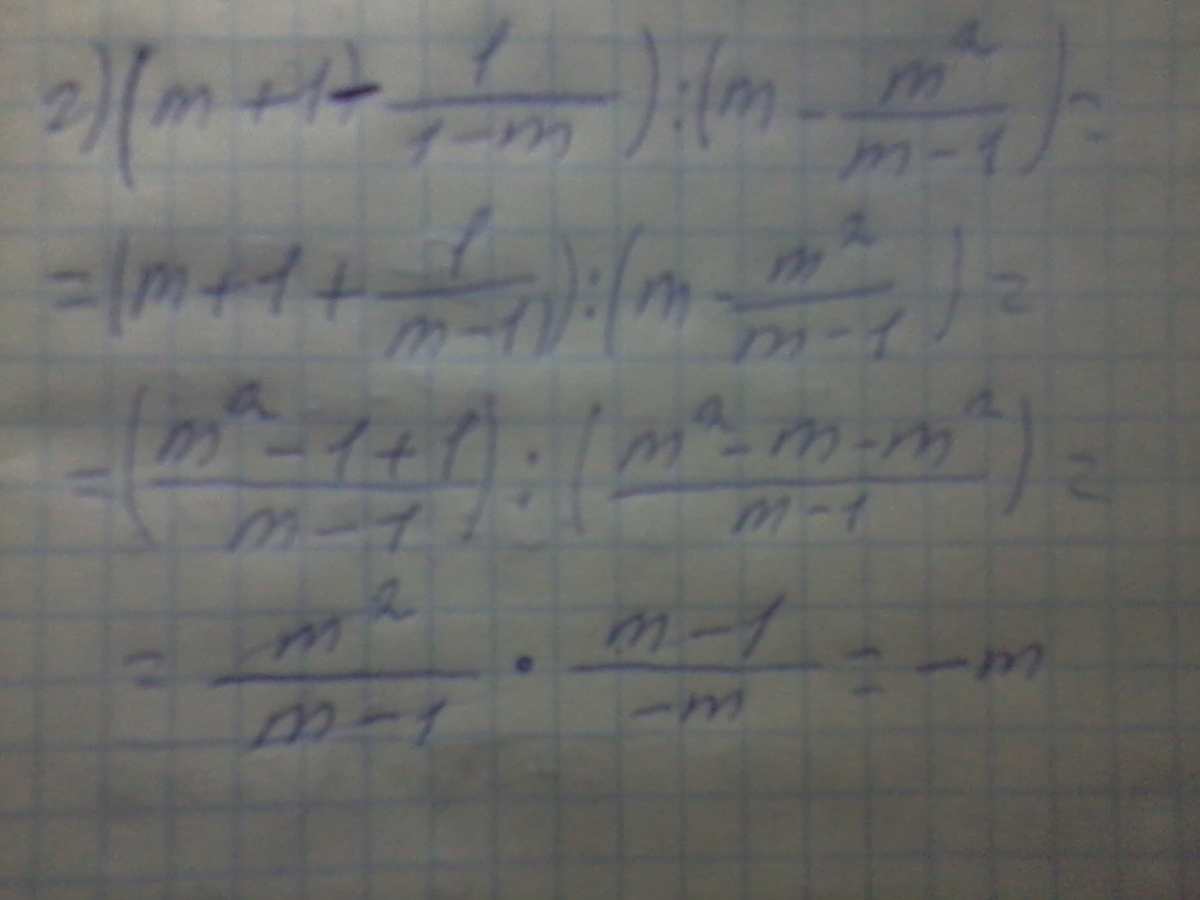 2) (m + 1 - 1/(1-m)) : (m - m²/(m-1)) =
= (m + 1 + 1/(m-1)) : (m - m²/(m-1)) =
= ((m² - 1 + 1)/(m-1)) : ((m² - m - m²)/(m-1)) =
= m²/(m-1) · (m-1)/(-m) = -m